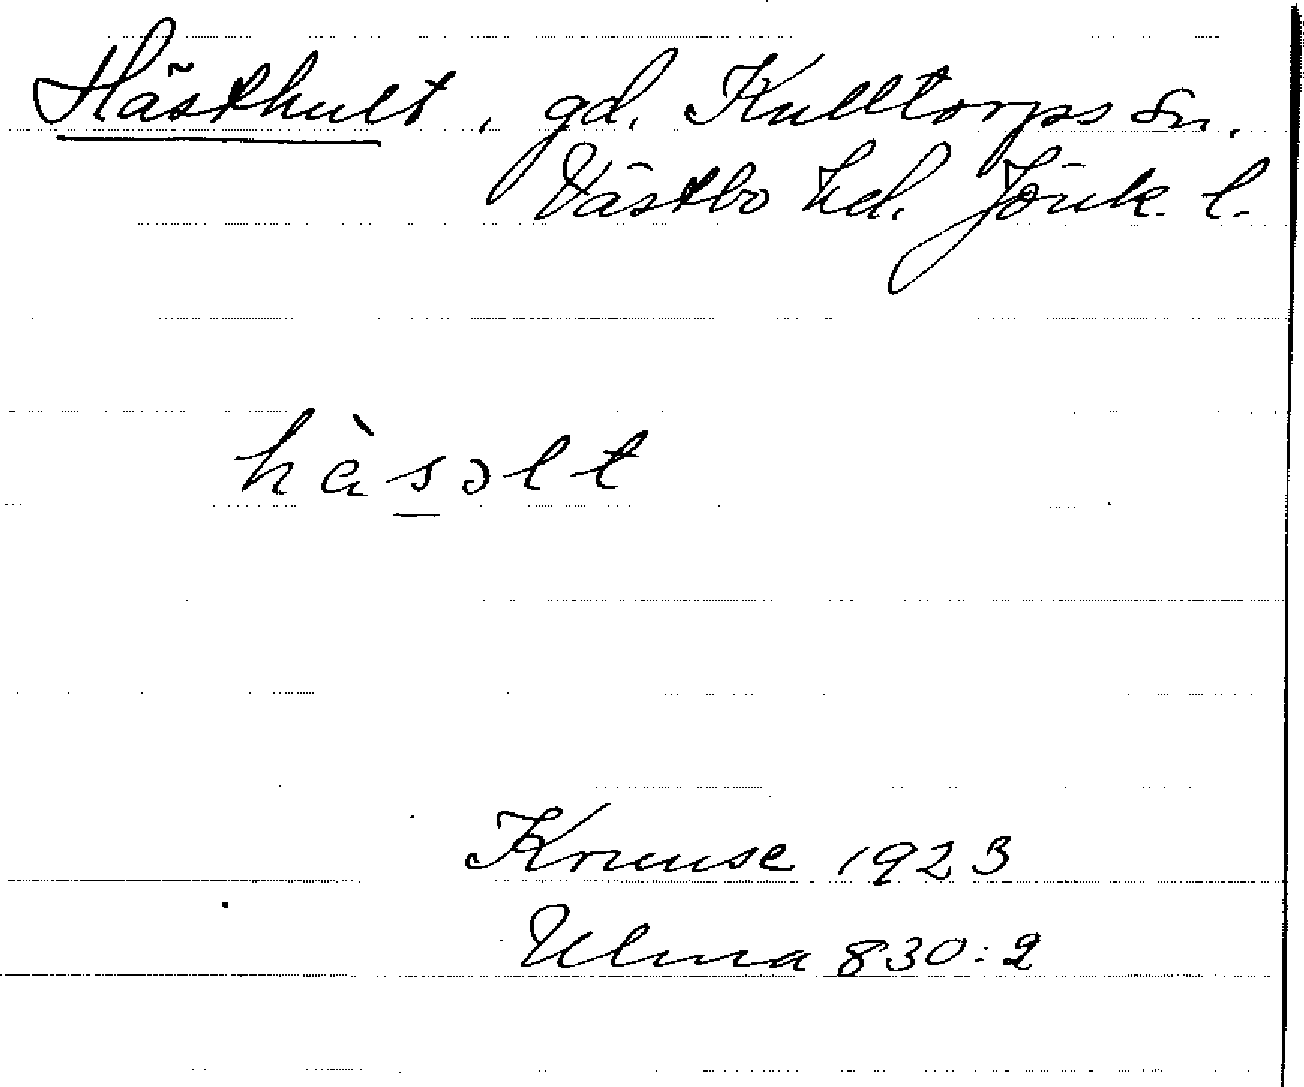 Hästhult, gd. Kulltorps sn.
Västbo hd. Jönk. l.
hàs̲əlt
Kruuse 1923
Ulma 830:2